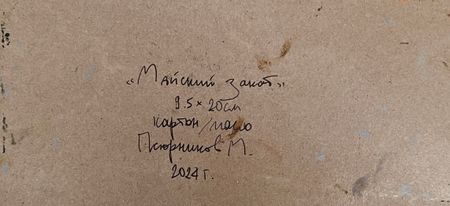 «Майский закат»
9.5 × 20см
картон/масло
М.
2024 г.